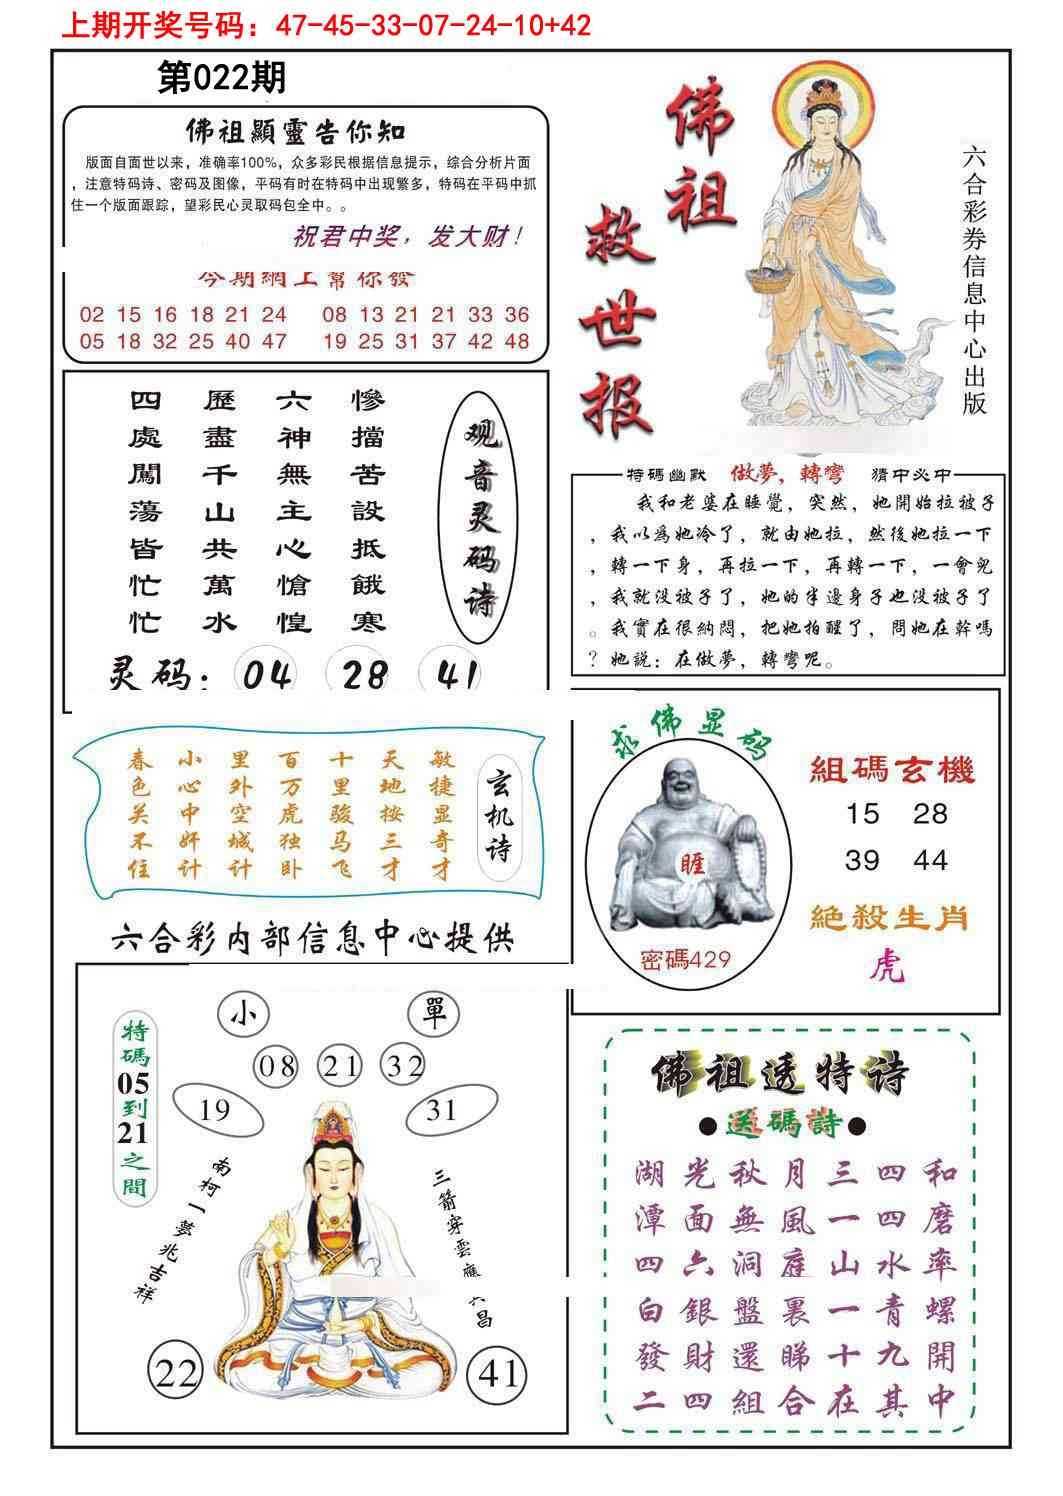 上期开奖号码：47-45-33-07-24-10+42
第022期
佛祖顯靈告你知
版面自面世以来，准确率100%，众多彩民根据信息提示，综合分析片面
，注意特码诗、密码及图像，平码有时在特码中出现繁多，特码在平码中抓
住一个版面跟踪，望彩民心灵取码包全中。。
祝君中奖，发大财！
今期網上幫你發
02 15 16 18 21 24 08 13 21 21 33 36
05 18 32 25 40 47 19 25 31 37 42 48
佛祖
救世报
六合彩券信息中心出版
慘擋苦設抵餓寒
六神無主心愴惶
歷盡千山共萬水
四處闖蕩皆忙忙
观音灵码诗
灵码：04 28 41
特碼幽默 做夢，轉彎 猜中必中
我和老婆在睡覺，突然，她開始拉被子
，我以爲她冷了，就由她拉，然後她拉一下
，轉一下身，再拉一下，再轉一下，一會兒
，我就没被子了，她的半邊身子也没被子了
。我實在很納悶，把她拍醒了，問她在幹嗎
？她説：在做夢，轉彎呢。
玄机诗
敏捷显奇才
天地按三才
十里骏马飞
百万虎独卧
里外空城计
小心中奸计
春色关不住
六合彩内部信息中心提供
求佛显码
睚
密碼429
組碼玄機
15 28
39 44
絕殺生肖
虎
特碼05到21之間
小 單
08 21 32
19 31
南柯一夢兆吉祥
三箭穿雲應
昌
22 41
佛祖透特诗
●送碼詩●
湖光秋月三四和
潭面無風一四磨
四六洞庭山水率
白銀盤裏一青螺
發財還睇十九開
二四組合在其中